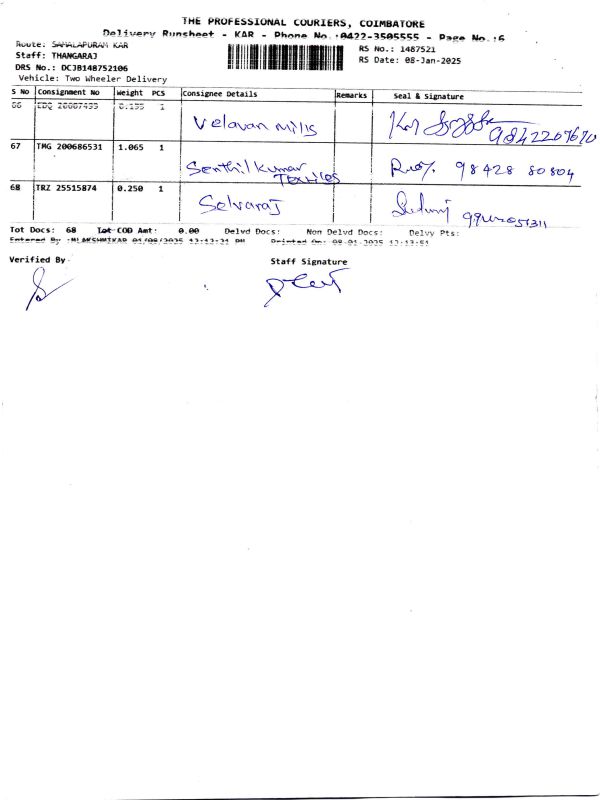 THE PROFESSIONAL COURIERS, COIMBATORE
Delivery Runsheet - KAR - Phone No.:0422-3505555 - Page No.:6
Route: SAMALAPURAM KAR
Staff: THANGARAJ
DRS No.: DCJB148752106
Vehicle: Two Wheeler Delivery
RS No.: 1487521
RS Date: 08-Jan-2025
S No Consignment No Weight PCS Consignee Details Remarks Seal & Signature
66 EDQ 20087455 0.155 1 Velavan mills 9842207670
67 TMG 200686531 1.065 1 Senthil kumar Textiles 98428 80804
68 TRZ 25515874 0.250 1 Selvaraj
Tot Docs: 68 Tot COD Amt: 0.00 Delvd Docs: Non Delvd Docs: Delvy Pts:
Entered By Printed On: 08-01-2025
Verified By
Staff Signature